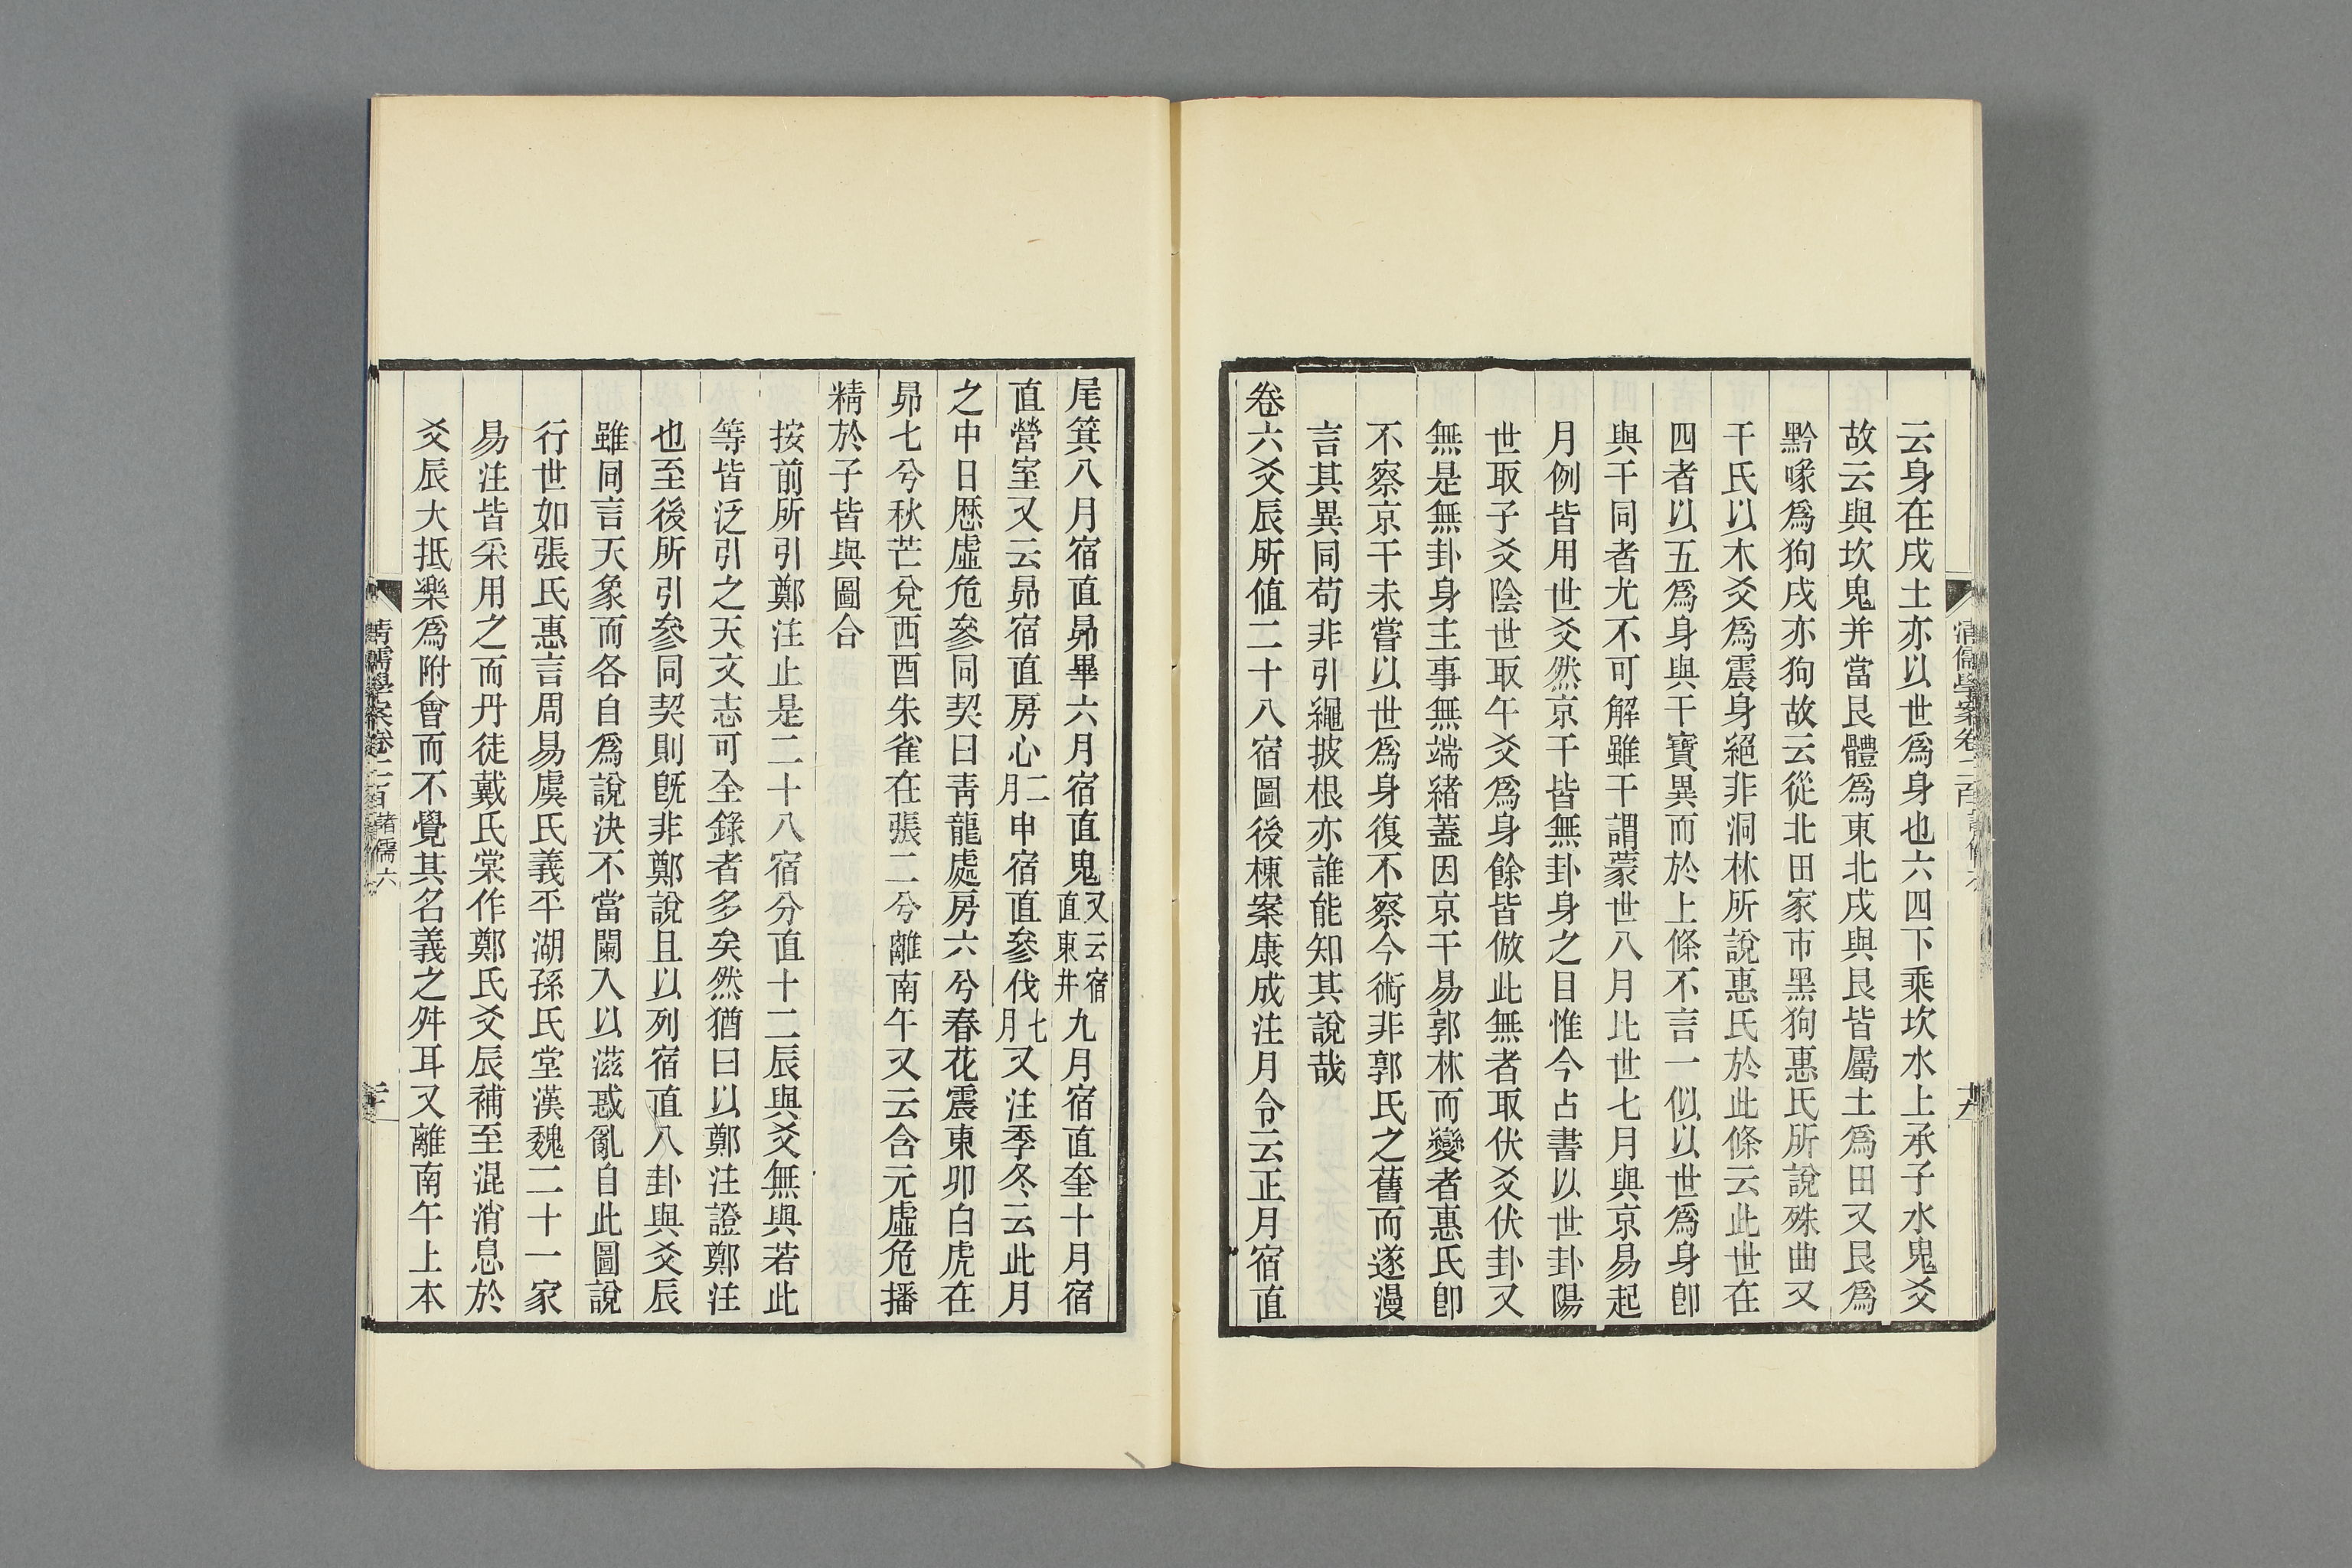 云身在戌土亦以世爲身也六四下乘坎水上承子水鬼爻
故云與坎鬼并當艮體爲東北戌與艮皆屬土爲田又艮爲
黔喙爲狗戌亦狗故云從北田家市黑狗惠氏所說殊曲又
干氏以木爻爲震身絕非洞林所說惠氏於此條云此世在
四者以五爲身與干寶異而於上條不言一似以世爲身卽
與干同者尤不可解雖干謂蒙世八月比世七月與京易起
月例皆用世爻然京干皆無卦身之目惟今占書以世卦陽
世取子爻陰世取午爻爲身餘皆倣此無者取伏爻伏卦又
無是無卦身主事無端緒蓋因京干易郭林而變者惠氏卽
不察京干未嘗以世爲身復不察今術非郭氏之舊而遂漫
言其異同苟非引繩披根亦誰能知其說哉
卷六爻辰所值二十八宿圖後棟案康成注月令云正月宿直
尾箕八月宿直昴畢六月宿直鬼又云宿直東井九月宿直奎十月宿
直營室又云昴宿直房心二月申宿直參伐七月又注季冬云此月
之中日歷虛危參同契曰靑龍處房六兮春花震東卯白虎在
昴七兮秋芒兌西酉朱雀在張二兮離南午又云含元虛危播
精於子皆與圖合
按前所引鄭注止是二十八宿分直十二辰與爻無與若此
等皆泛引之天文志可全錄者多矣然猶曰以鄭注證鄭注
也至後所引參同契則旣非鄭說且以列宿直八卦與爻辰
雖同言天象而各自爲說決不當闌入以滋惑亂自此圖說
行世如張氏惠言周易虞氏義平湖孫氏堂漢魏二十一家
易注皆采用之而丹徒戴氏棠作鄭氏爻辰補至混消息於
爻辰大抵樂爲附會而不覺其名義之舛耳又離南午上本
清儒學案卷二百 諸儒六